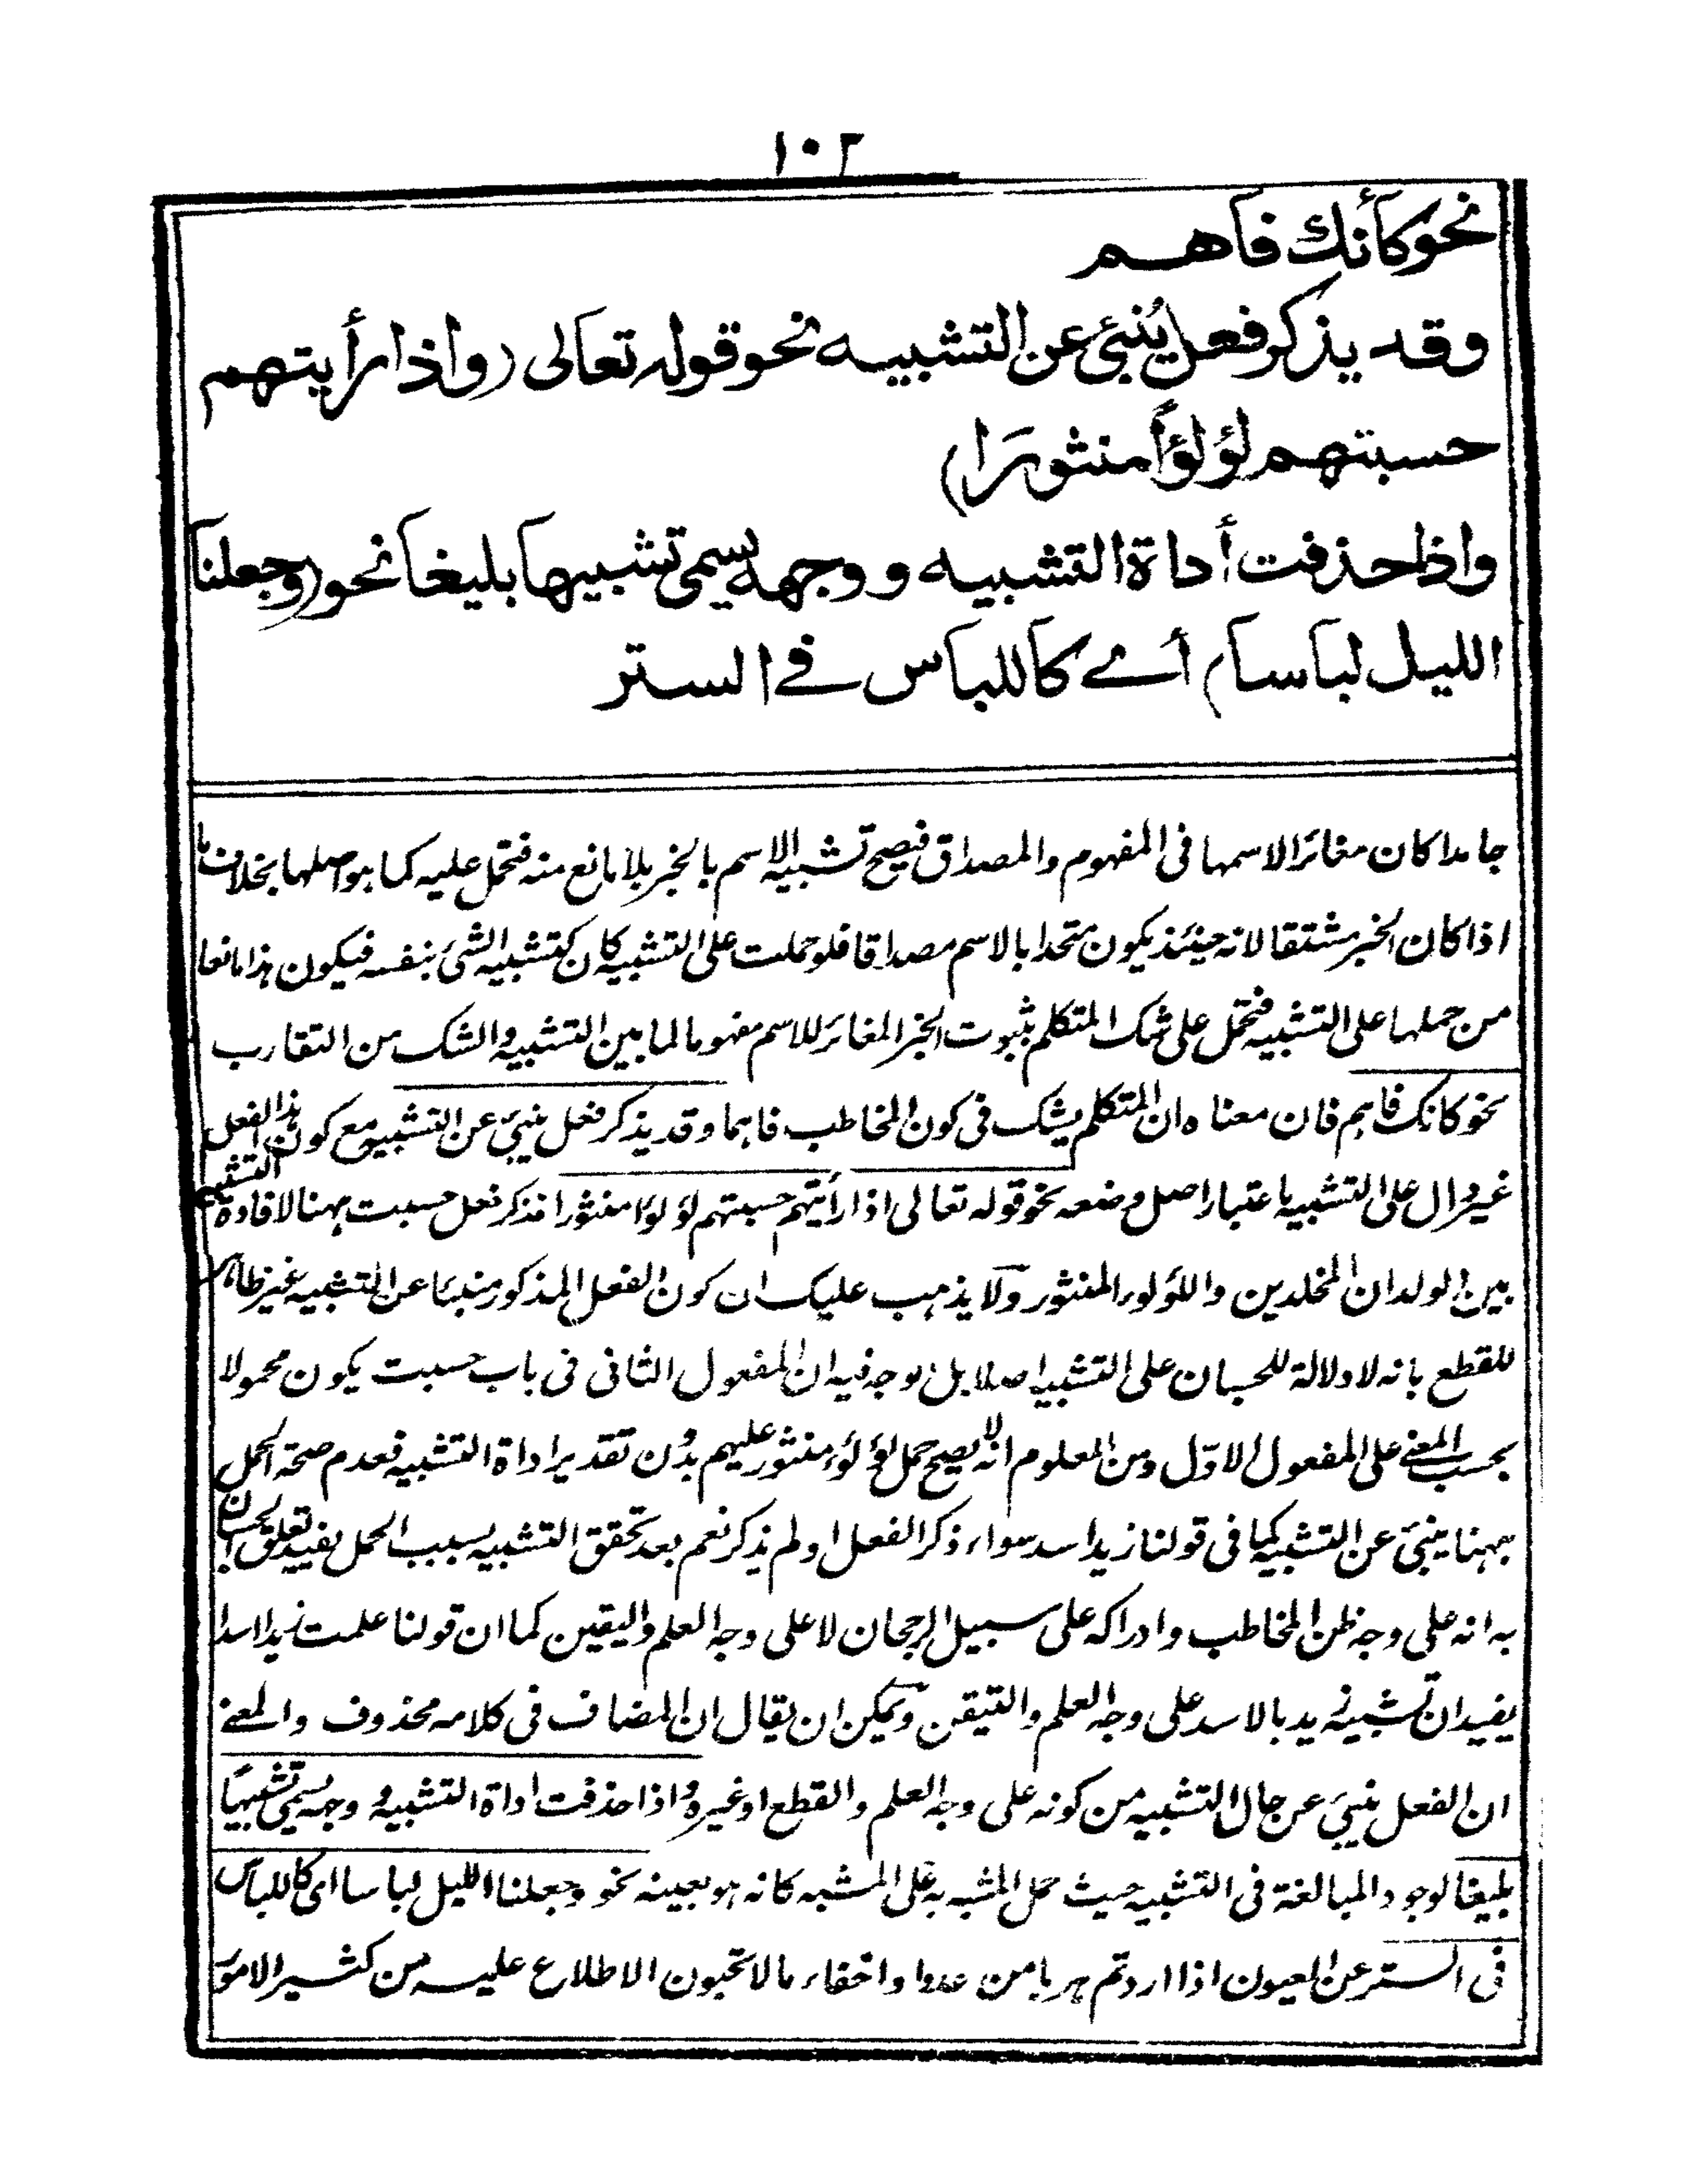 ١٠٢
نحو كأنك فاهم
وقد يذكر فعل يُنبئ عن التشبيه نحو قوله تعالى (واذا رأيتهم
حسبتهم لؤلؤاً منثورَا)
واذا حذفت أداة التشبيه ووجهه يسمى تشبيها بليغا نحو (وجعلنا
الليل لباسا) أے كاللباس فے الستر
جامدا كان مغائر الاسمها فى المفهوم والمصداق فيصح تشبيه الاسم بالخبر بلا مانع منه فتحمل عليه كما هو اصلها بخلاف ما
اذا كان الخبر مشتقا لانه حينئذ يكون متحدا بالاسم مصداقا فلو حملت على التشبيه كان كتشبيه الشئ بنفسه فيكون هذا مانعا
من حملها على التشبيه فتحمل على شك المتكلم بثبوت الخبر المغائر للاسم مفهوما لما بين التشبيه والشك من التقارب
نحو كانك فاهم فان معناه ان المتكلم يشك فى كون المخاطب فاهما وقد يذكر فعل ينبئ عن التشبيه مع كون هذا الفعل
غير دال على التشبيه باعتبار اصل وضعه نحو قوله تعالى اذا رأيتهم حسبتهم لؤلؤا منثورا فذكر فعل حسبت ههنا لافادة التشبيه
بين الولدان المخلدين واللؤلوء المنثور ولا يذهب عليك ان كون الفعل المذكور منبئا عن التشبيه غير ظاهر
للقطع بانه لا دلالة للحسبان على التشبيه اصلا بل الوجه فيه ان المفعول الثانى فى باب حسبت يكون محمولا
بحسب المعنے على المفعول الاوّل ومن المعلوم انه لا يصح حمل لؤلؤء منثور عليهم بدون تقدير اداة التشبيه فعدم صحة الحمل
ههنا ينبئ عن التشبيه كما فى قولنا زيد اسد سواء ذكر الفعل او لم يذكر نعم بعد تحقق التشبيه بسبب الحمل يفيد تعلق الحسبان
به انه على وجه ظن المخاطب وادراكه على سبيل الرجحان لا على وجه العلم واليقين كما ان قولنا علمت زيدا اسدا
يفيد ان تشبيه زيد بالاسد على وجه العلم والتيقن ويمكن ان يقال ان المضاف فى كلامه محذوف والمعنے
ان الفعل ينبئ عن حال التشبيه من كونه على وجه العلم والقطع او غيره واذا حذفت اداة التشبيه ووجهه يسمى تشبيهًا
بليغا لوجود المبالغة فى التشبيه حيث حمل المشبه به على المشبه كانه هو بعينه نحو وجعلنا الليل لباسا اى كاللباس
فى الستر عن العيون اذا اردتم هربا من عدو او اخفاء ما لا تحبون الاطلاع عليه من كثير الامور